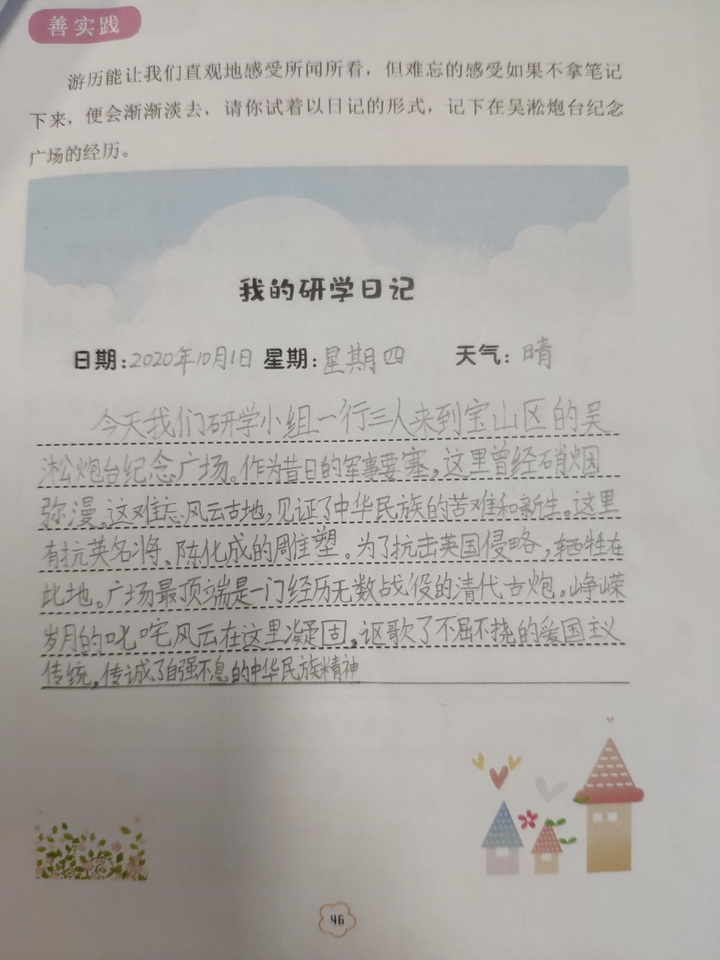 善实践
游历能让我们直观地感受所闻所看，但难忘的感受如果不拿笔记
下来，便会渐渐淡去，请你试着以日记的形式，记下在吴淞炮台纪念
广场的经历。
我的研学日记
日期:2020年10月1日 星期:星期四 天气:晴
今天我们研学小组一行三人来到宝山区的吴
淞炮台纪念广场。作为昔日的军事要塞，这里曾经硝烟
弥漫。这难忘风云古地，见证了中华民族的苦难和新生。这里
有抗英名将、陈化成的雕塑。为了抗击英国侵略，牺牲在
此地。广场最顶端是一门经历无数战役的清代古炮。峥嵘
岁月的叱咤风云在这里凝固，讴歌了不屈不挠的爱国主义
传统，传诚了自强不息的中华民族精神
46